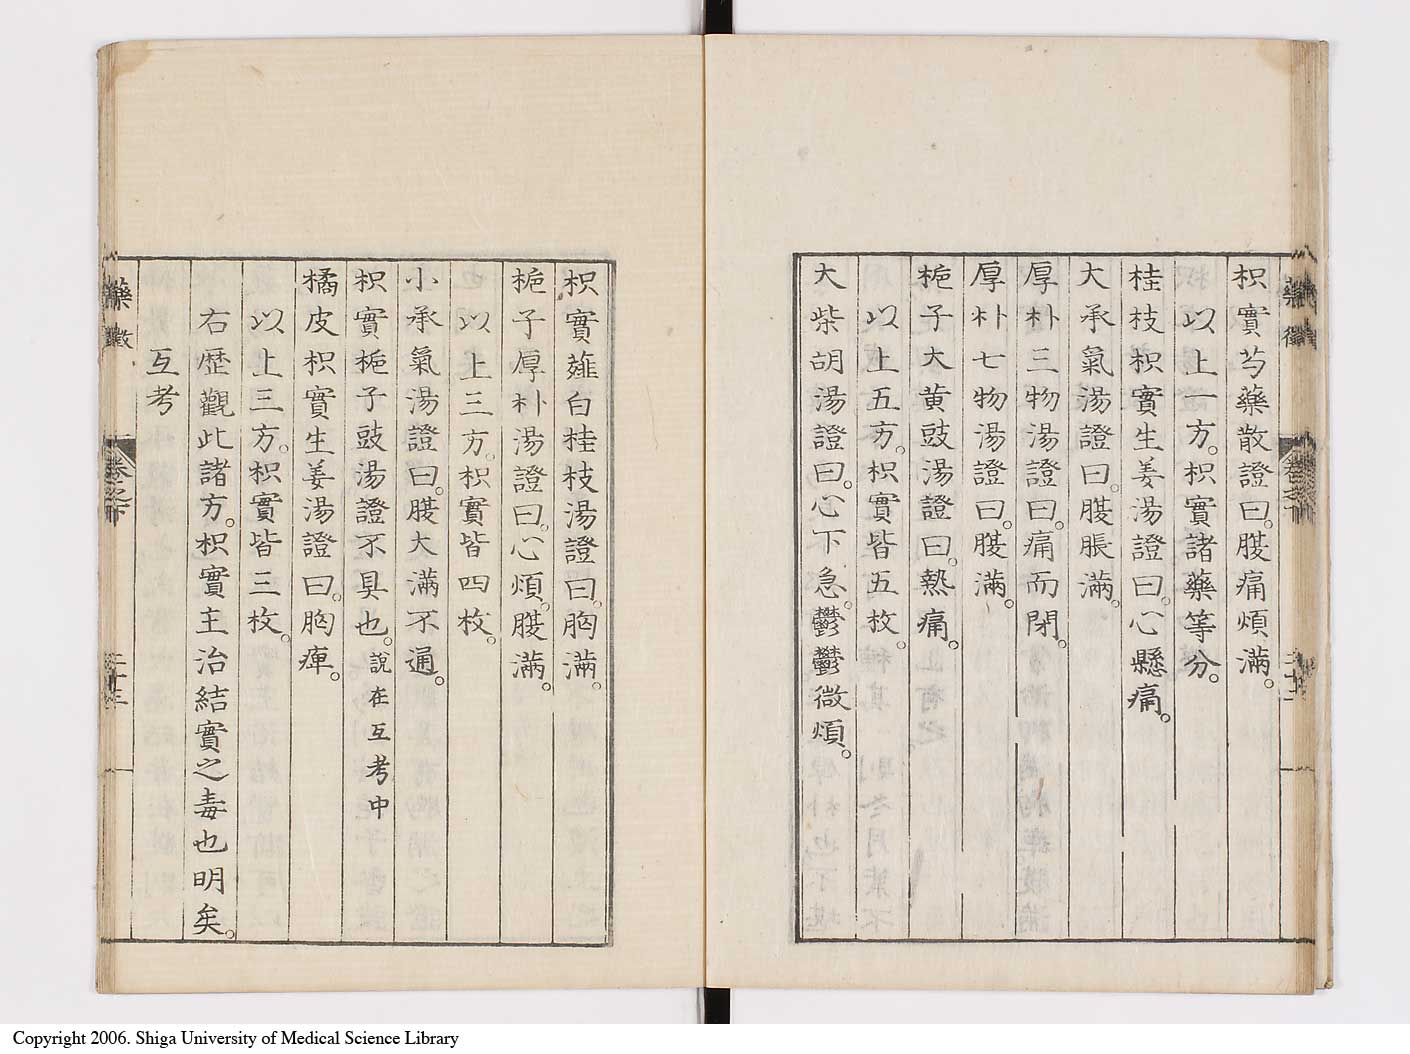 枳實芍藥散證曰。腹痛煩滿。
以上一方。枳實諸藥等分。
桂枝枳實生姜湯證曰。心懸痛。
大承氣湯證曰。腹脹滿。
厚朴三物湯證曰。痛而閉。
厚朴七物湯證曰。腹滿。
梔子大黄豉湯證曰。熱痛。
以上五方。枳實皆五枚。
大柴胡湯證曰。心下急。鬱鬱微煩。
枳實薤白桂枝湯證曰。胸滿。
梔子厚朴湯證曰。心煩。腹滿。
以上三方。枳實皆四枚。
小承氣湯證曰。腹大滿不通。
枳實梔子豉湯證不具也。說在互考中
橘皮枳實生姜湯證曰。胸痺。
以上三方。枳實皆三枚。
右歷觀此諸方。枳實主治結實之毒也明矣。
互考
藥徵 卷之下 二十三
Copyright 2006. Shiga University of Medical Science Library